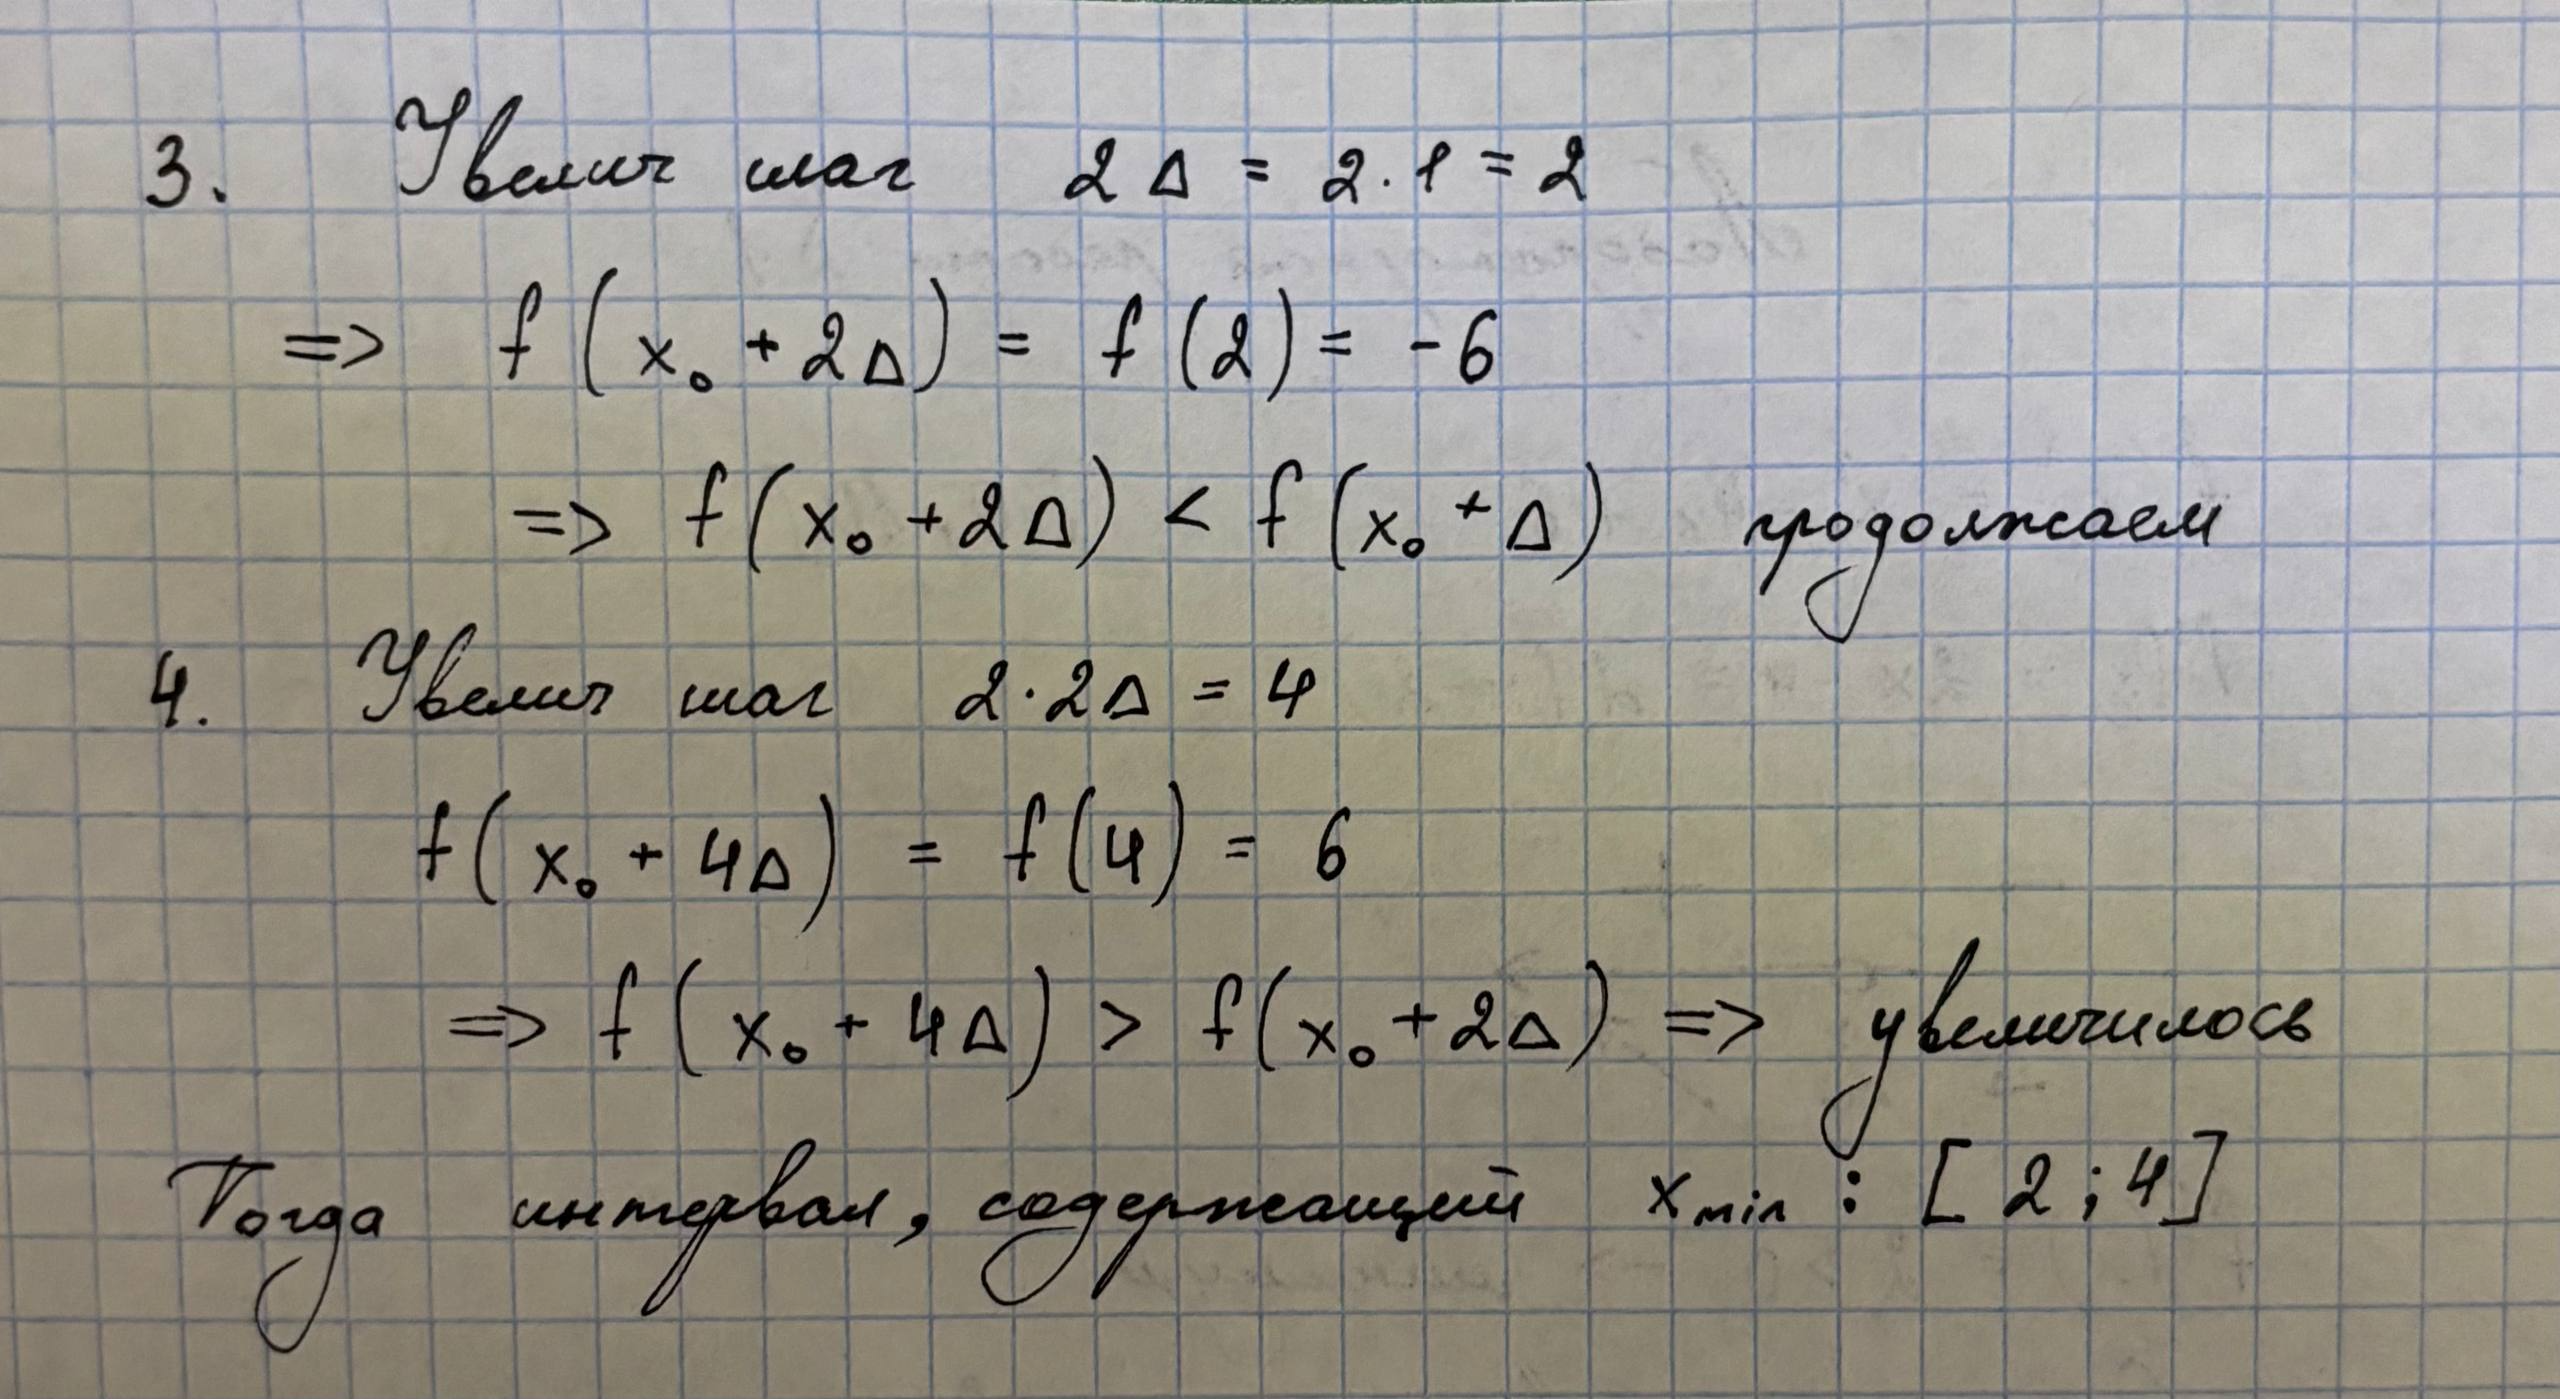 3. Увелич шаг 2Δ = 2·1 = 2
=> f(x₀ + 2Δ) = f(2) = -6
=> f(x₀ + 2Δ) < f(x₀ + Δ) продолжаем
4. Увелич шаг 2·2Δ = 4
f(x₀ + 4Δ) = f(4) = 6
=> f(x₀ + 4Δ) > f(x₀ + 2Δ) => увеличилось
Тогда интервал, содержащий xₘᵢₙ : [2;4]